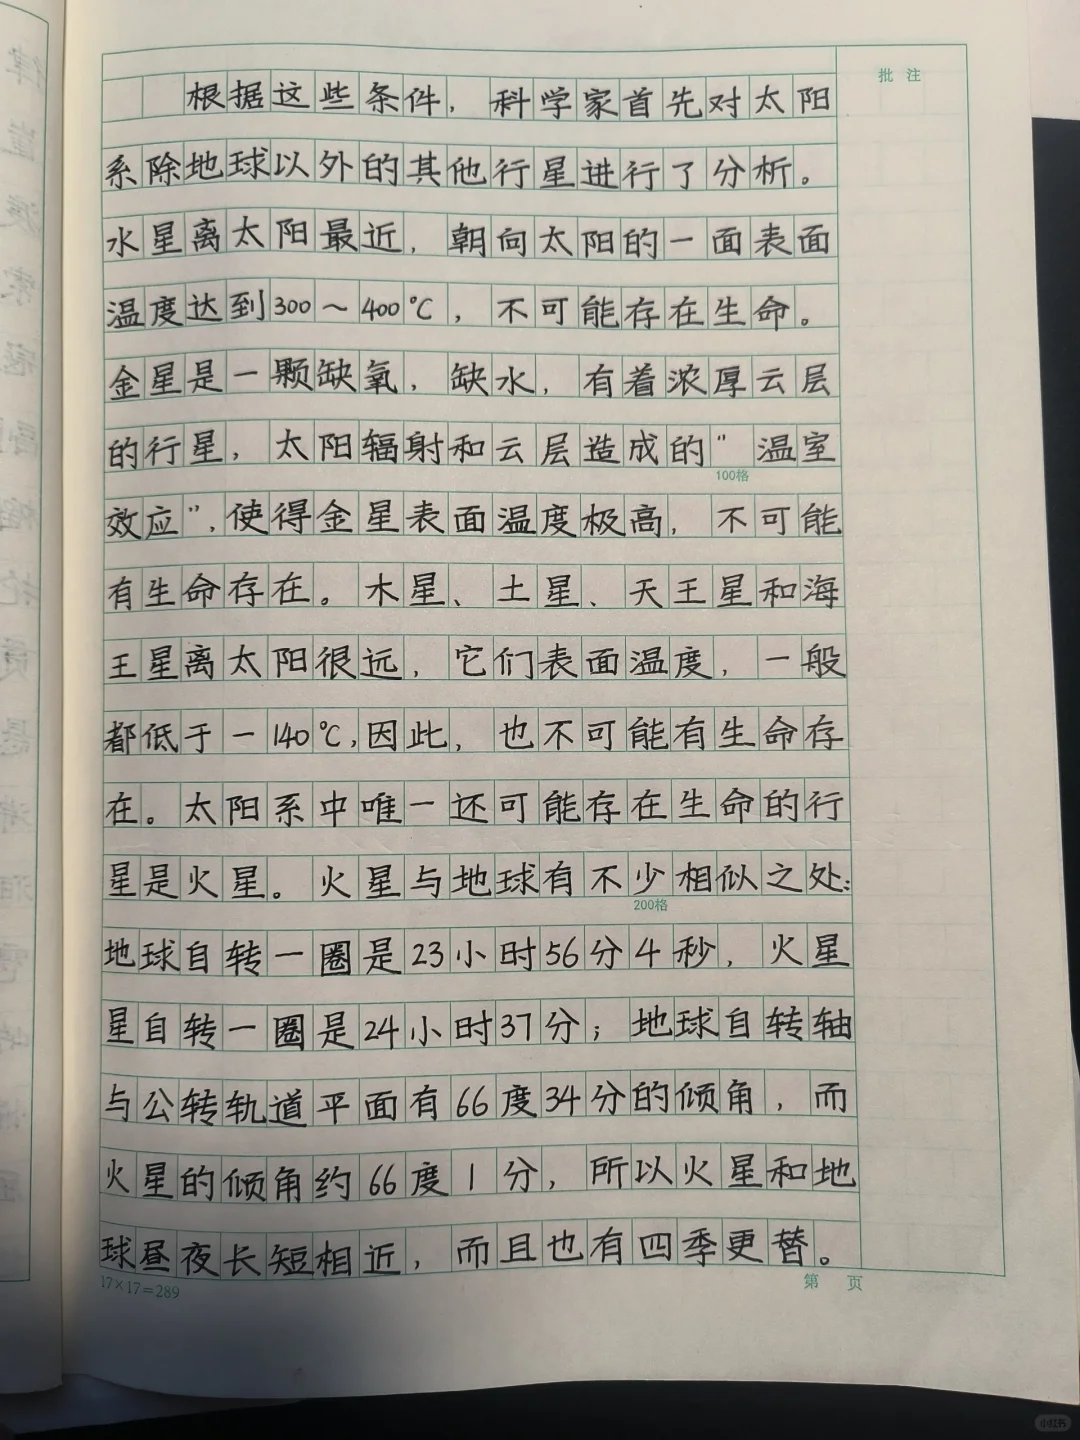 批注
根据这些条件，科学家首先对太阳
系除地球以外的其他行星进行了分析。
水星离太阳最近，朝向太阳的一面表面
温度达到300～400℃，不可能存在生命。
金星是一颗缺氧，缺水，有着浓厚云层
的行星，太阳辐射和云层造成的"温室
100格
效应"，使得金星表面温度极高，不可能
有生命存在。木星、土星、天王星和海
王星离太阳很远，它们表面温度，一般
都低于－140℃，因此，也不可能有生命存
在。太阳系中唯一还可能存在生命的行
星是火星。火星与地球有不少相似之处：
200格
地球自转一圈是23小时56分4秒，火星
星自转一圈是24小时37分；地球自转轴
与公转轨道平面有66度34分的倾角，而
火星的倾角约66度1分，所以火星和地
球昼夜长短相近，而且也有四季更替。
17×17=289
第 页
小红书